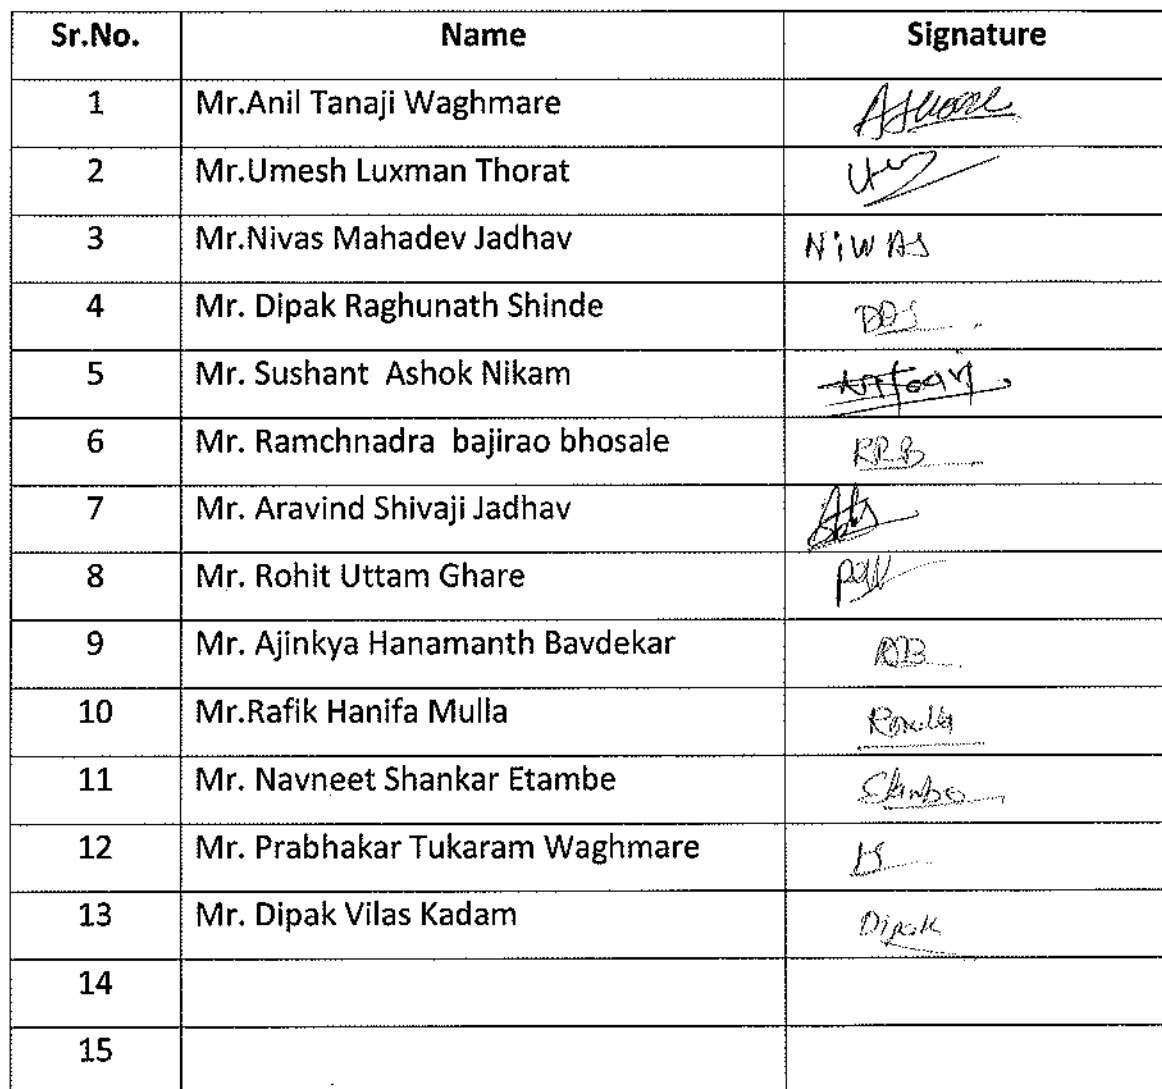 Sr.No. Name Signature
1 Mr.Anil Tanaji Waghmare
2 Mr.Umesh Luxman Thorat
3 Mr.Nivas Mahadev Jadhav NiWAS
4 Mr. Dipak Raghunath Shinde
5 Mr. Sushant Ashok Nikam
6 Mr. Ramchnadra bajirao bhosale RRB
7 Mr. Aravind Shivaji Jadhav
8 Mr. Rohit Uttam Ghare
9 Mr. Ajinkya Hanamanth Bavdekar
10 Mr.Rafik Hanifa Mulla
11 Mr. Navneet Shankar Etambe
12 Mr. Prabhakar Tukaram Waghmare
13 Mr. Dipak Vilas Kadam Dipak
14
15